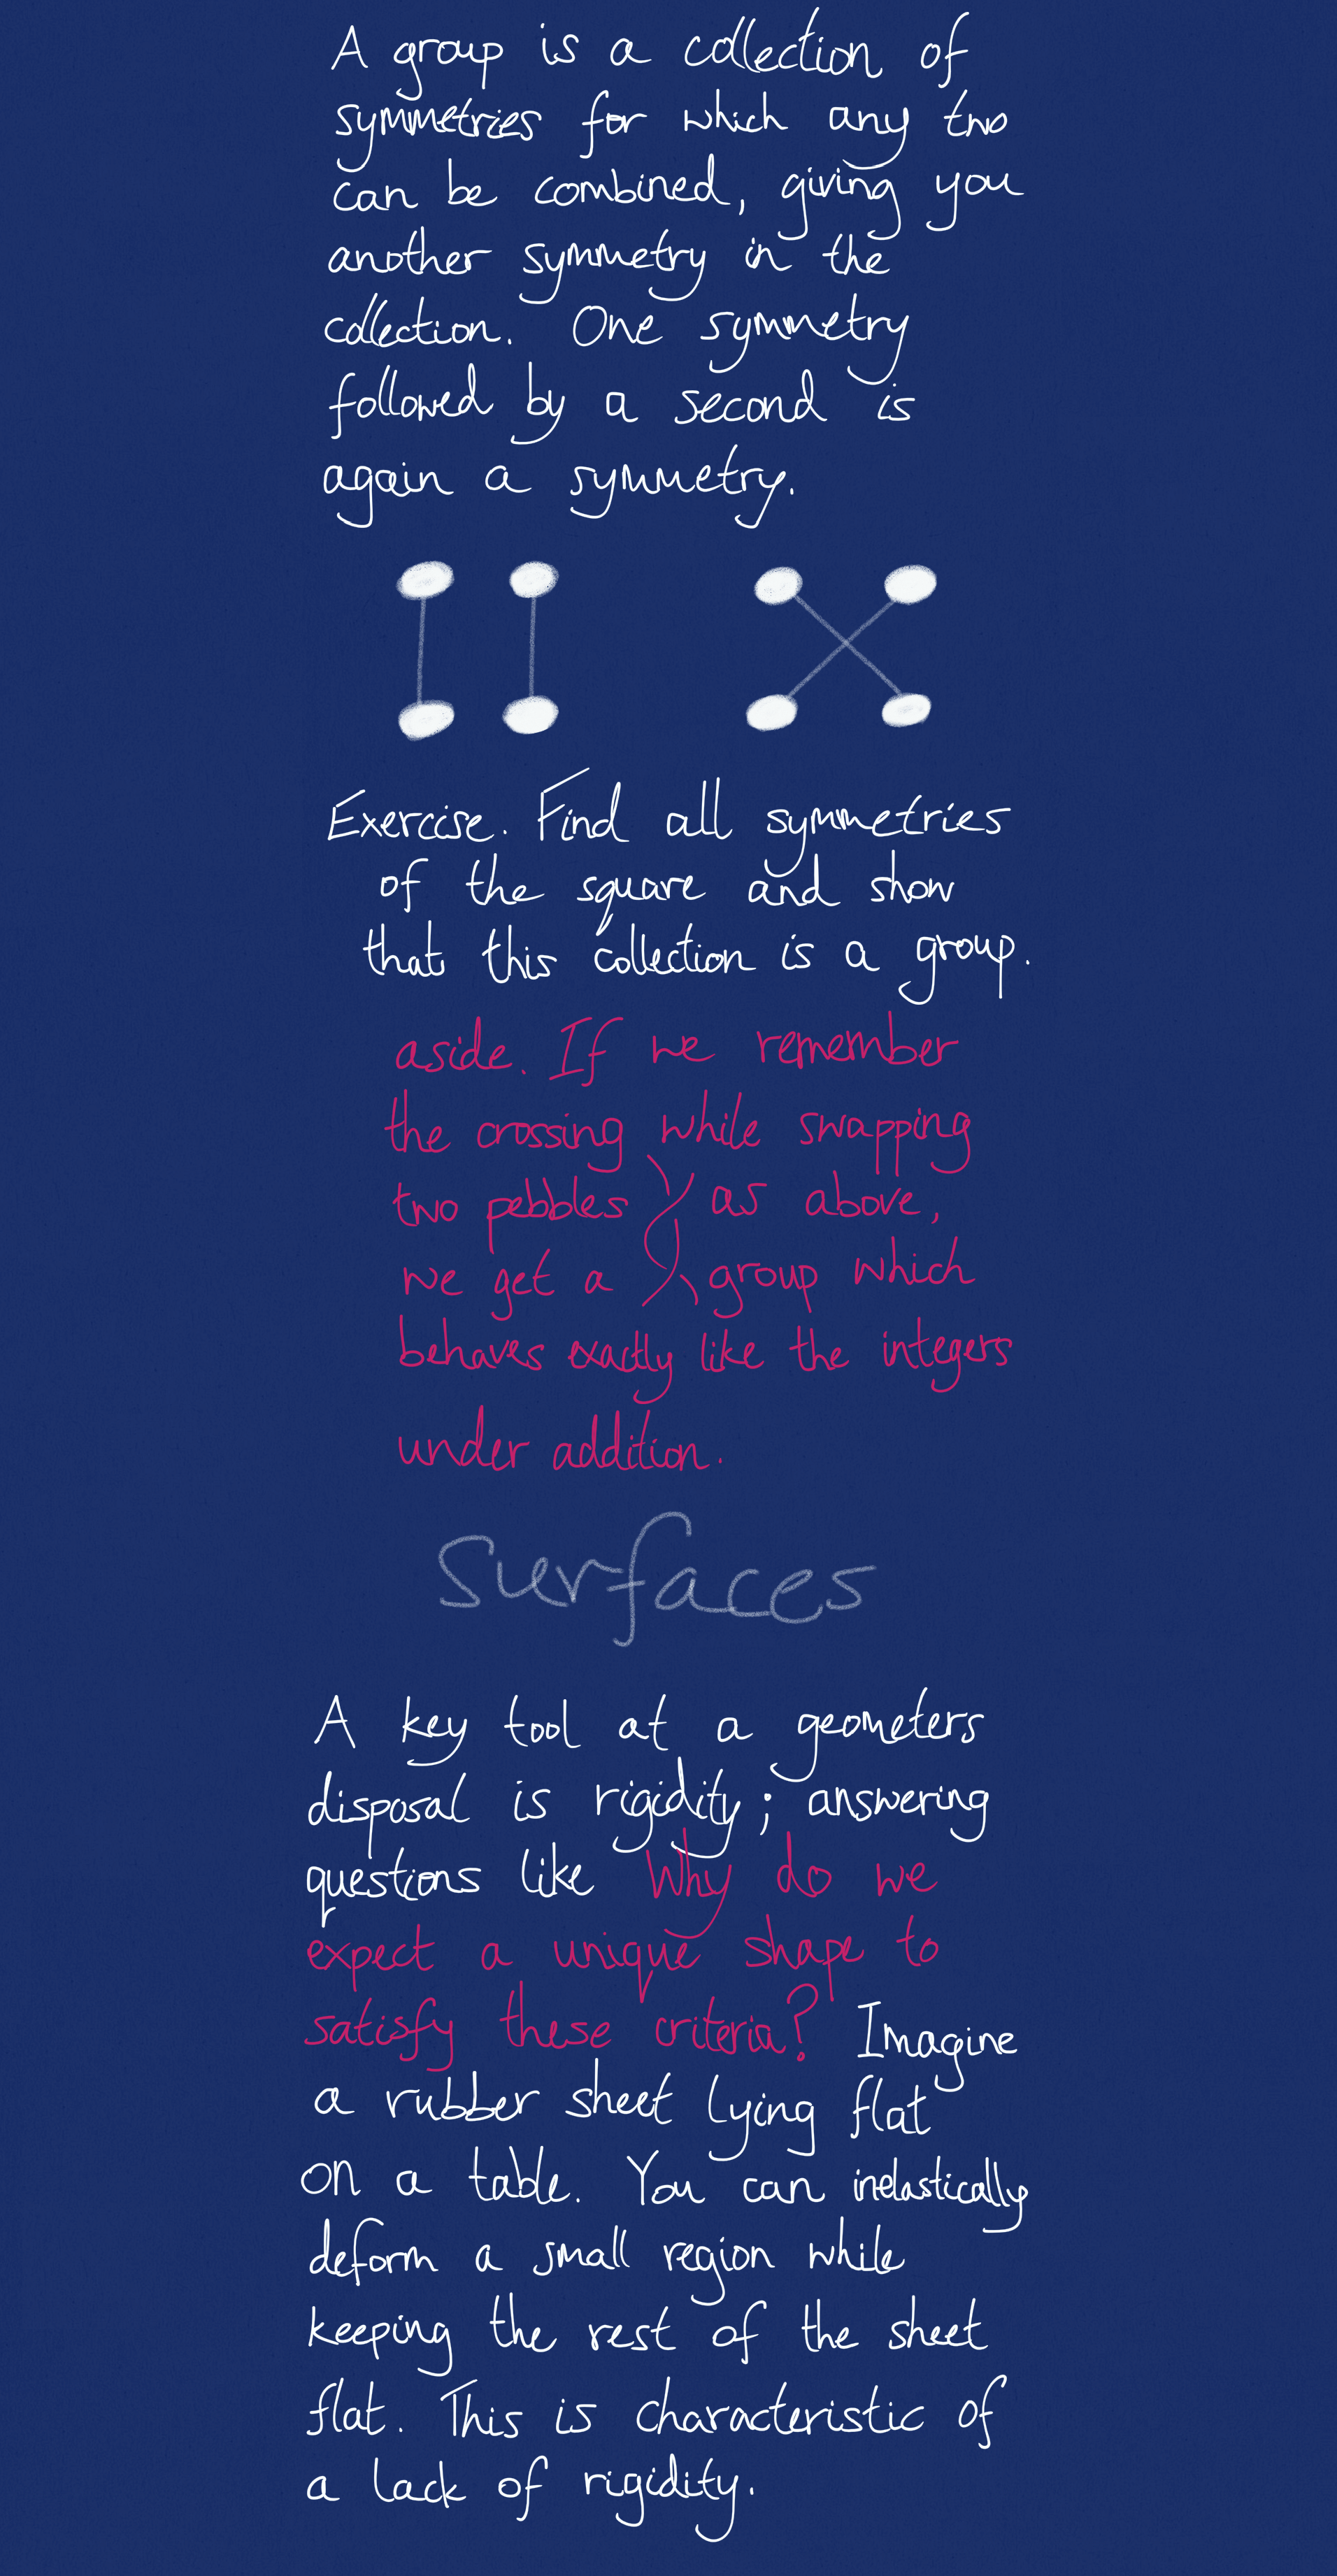 A group is a collection of
symmetries for which any two
can be combined, giving you
another symmetry in the
collection. One symmetry
followed by a second is
again a symmetry.
Exercise. Find all symmetries
of the square and show
that this collection is a group.
aside. If we remember
the crossing while swapping
two pebbles as above,
we get a group which
behaves exactly like the integers
under addition.
Surfaces
A key tool at a geometers
disposal is rigidity; answering
questions like Why do we
expect a unique shape to
satisfy these criteria? Imagine
a rubber sheet lying flat
on a table. You can inelastically
deform a small region while
keeping the rest of the sheet
flat. This is characteristic of
a lack of rigidity.